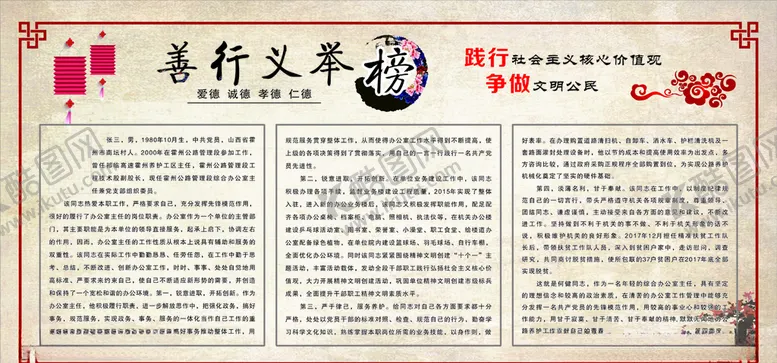 善行义举榜
爱德 诚德 孝德 仁德
践行社会主义核心价值观
争做文明公民
张三，男，1980年10月生，中共党员，山西省霍
州市闫坛村人。2000年在霍州公路管理段参加工作，
曾任祁临高速霍州养护工区主任，霍州公路管理段工
程技术股副股长，现任霍州公路管理段综合办公室主
任兼党支部组织委员。
该同志热爱本职工作，严格要求自己，充分发挥先锋模范作用，
很好的履行了办公室主任的岗位职责。办公室作为一个单位的主管部
门，其主要职能是为本单位的领导直接服务，起承上启下、协调左右
的作用。因而，办公室主任的工作性质从根本上说具有辅助的和服务的
双重性。该同志在实际工作中勤勤恳恳、任劳任怨，在工作中勤于思
考、总结，不断改进、创新办公室工作。时时、事事、处处自觉地用
高标准、严要求来约束自己，使自己不断适应新形势的需要，并创造
和保持了一个宽松和谐的办公环境。第一，锐意进取，开拓创新。作为
办公室主任，他积极履行职责，进一步解放思想，把强化政务，搞好
事务，规范服务，实现政务、事务、服务的一体化当作自己工作的重
搞好事务推动整体工作，用
规范服务贯穿整体工作，从而使得办公室工作水平得到不断提高，使
上级的各项决策得到了贯彻落实，用自己的一言一行践行一名共产党
员先进性。
第二、锐意进取、开拓创新。在单位业务建设工作中，该同志
积极办理各项手续，监督业务楼建设工程质量，2015年实现了整体
入驻。进入新的办公业务后，该同志积极发挥职能作用，配足配
齐各项办公桌椅、档案柜、电脑、照相机、执法仪等，在机关办公楼
建设乒乓球活动室、图书室、荣誉室、小澡堂、职工食堂、给楼道办
公室配备绿色植物。在单位院内建设篮球场、羽毛球场、自行车棚，
全面优化办公环境。同时该同志紧紧围绕精神文明创建“十个一”主
题活动，丰富活动载体，发动全段干部职工践行弘扬社会主义核心价
值观，大力开展精神文明创建活动，巩固单位精神文明创建市级标兵
成果，全面提升干部职工精神文明素质水平。
第三，严于律己，服务养护。给同志对自己各方面要求都十分
严格，处处以党员干部的标准对照、检查、规范自己的行为，勤奋学
习科学文化知识，熟练掌握本职岗位所需的业务技能，以身作则，做
好表率。在办理购置道路清扫机、自卸车、洒水车、护栏清洗机及一
套路面灌封处理设备时，他以节约成本和提高使用效率为出发点，多
方咨询比较，通过政府采购正规程序全部购置到位，为实现公路养护
机械化奠定了坚实的硬件基础。
第四，淡薄名利，甘于奉献。该同志在工作中，以制度纪律规
范自己的一切言行，带头严格遵守机关各项规章制度，尊重领导、
团结同志，谦虚谨慎，主动接受来自各方面的意见和建议，不断改
进工作。坚持做到不利于机关的事不做，不利于机关形象的话不
说，积极维护机关的良好形象。2017年2月担任精准扶贫工作队
长后，带领扶贫工作队人员，深入到贫困户家中，走访慰问，调查
研究，共同商讨脱贫措施，使所包联的37户贫困户在2017年底全部
实现脱贫。
这就是何健同志，作为一名年轻的综合办公室主任，具有坚定
的理想信念和较高的政治素质，在清苦的办公室工作管理中能够充
分发挥一名共产党员的先锋模范作用，用较高的事业心和较强的工
作能力，用甘于寂寞、甘于清苦、甘于奉献的精神，默默无闻地为公
路养护工作奉献自己如春春